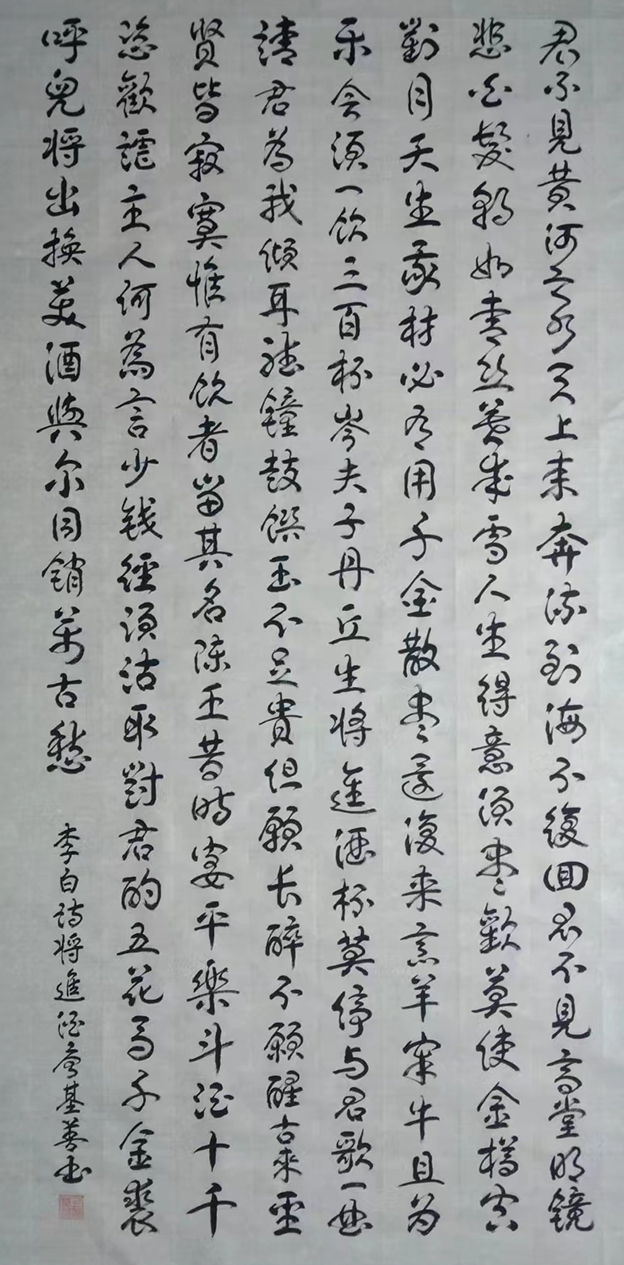 君不見黄河之水天上来奔流到海不復回君不見高堂明鏡
悲白髮朝如青丝暮成雪人生得意須尽歡莫使金樽空
對月天生我材必有用千金散尽還復来烹羊宰牛且为
乐会須一飲三百杯岑夫子丹丘生将進酒杯莫停与君歌一曲
請君為我傾耳聴鐘鼓饌玉不足貴但願长醉不願醒古来圣
贤皆寂寞惟有飲者留其名陳王昔時宴平樂斗酒十千
恣歡謔主人何為言少钱徑須沽取對君酌五花馬千金裘
呼兒将出換美酒與尔同銷萬古愁
李白詩将進酒基善书